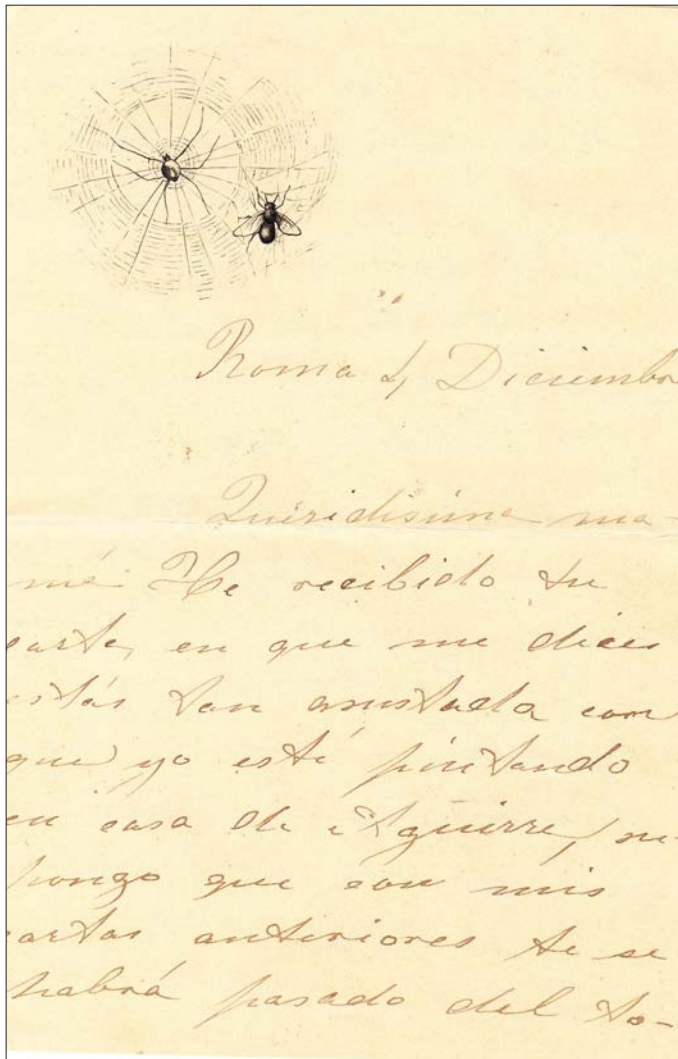 Roma 4, Diciembre
Queridisima ma-
má He recibido tu
carta, en que me dices
estás tan asustada con
que yo esté pintando
en casa de Aguirre, su-
pongo que con mis
cartas anteriores te se
habrá pasado del to-